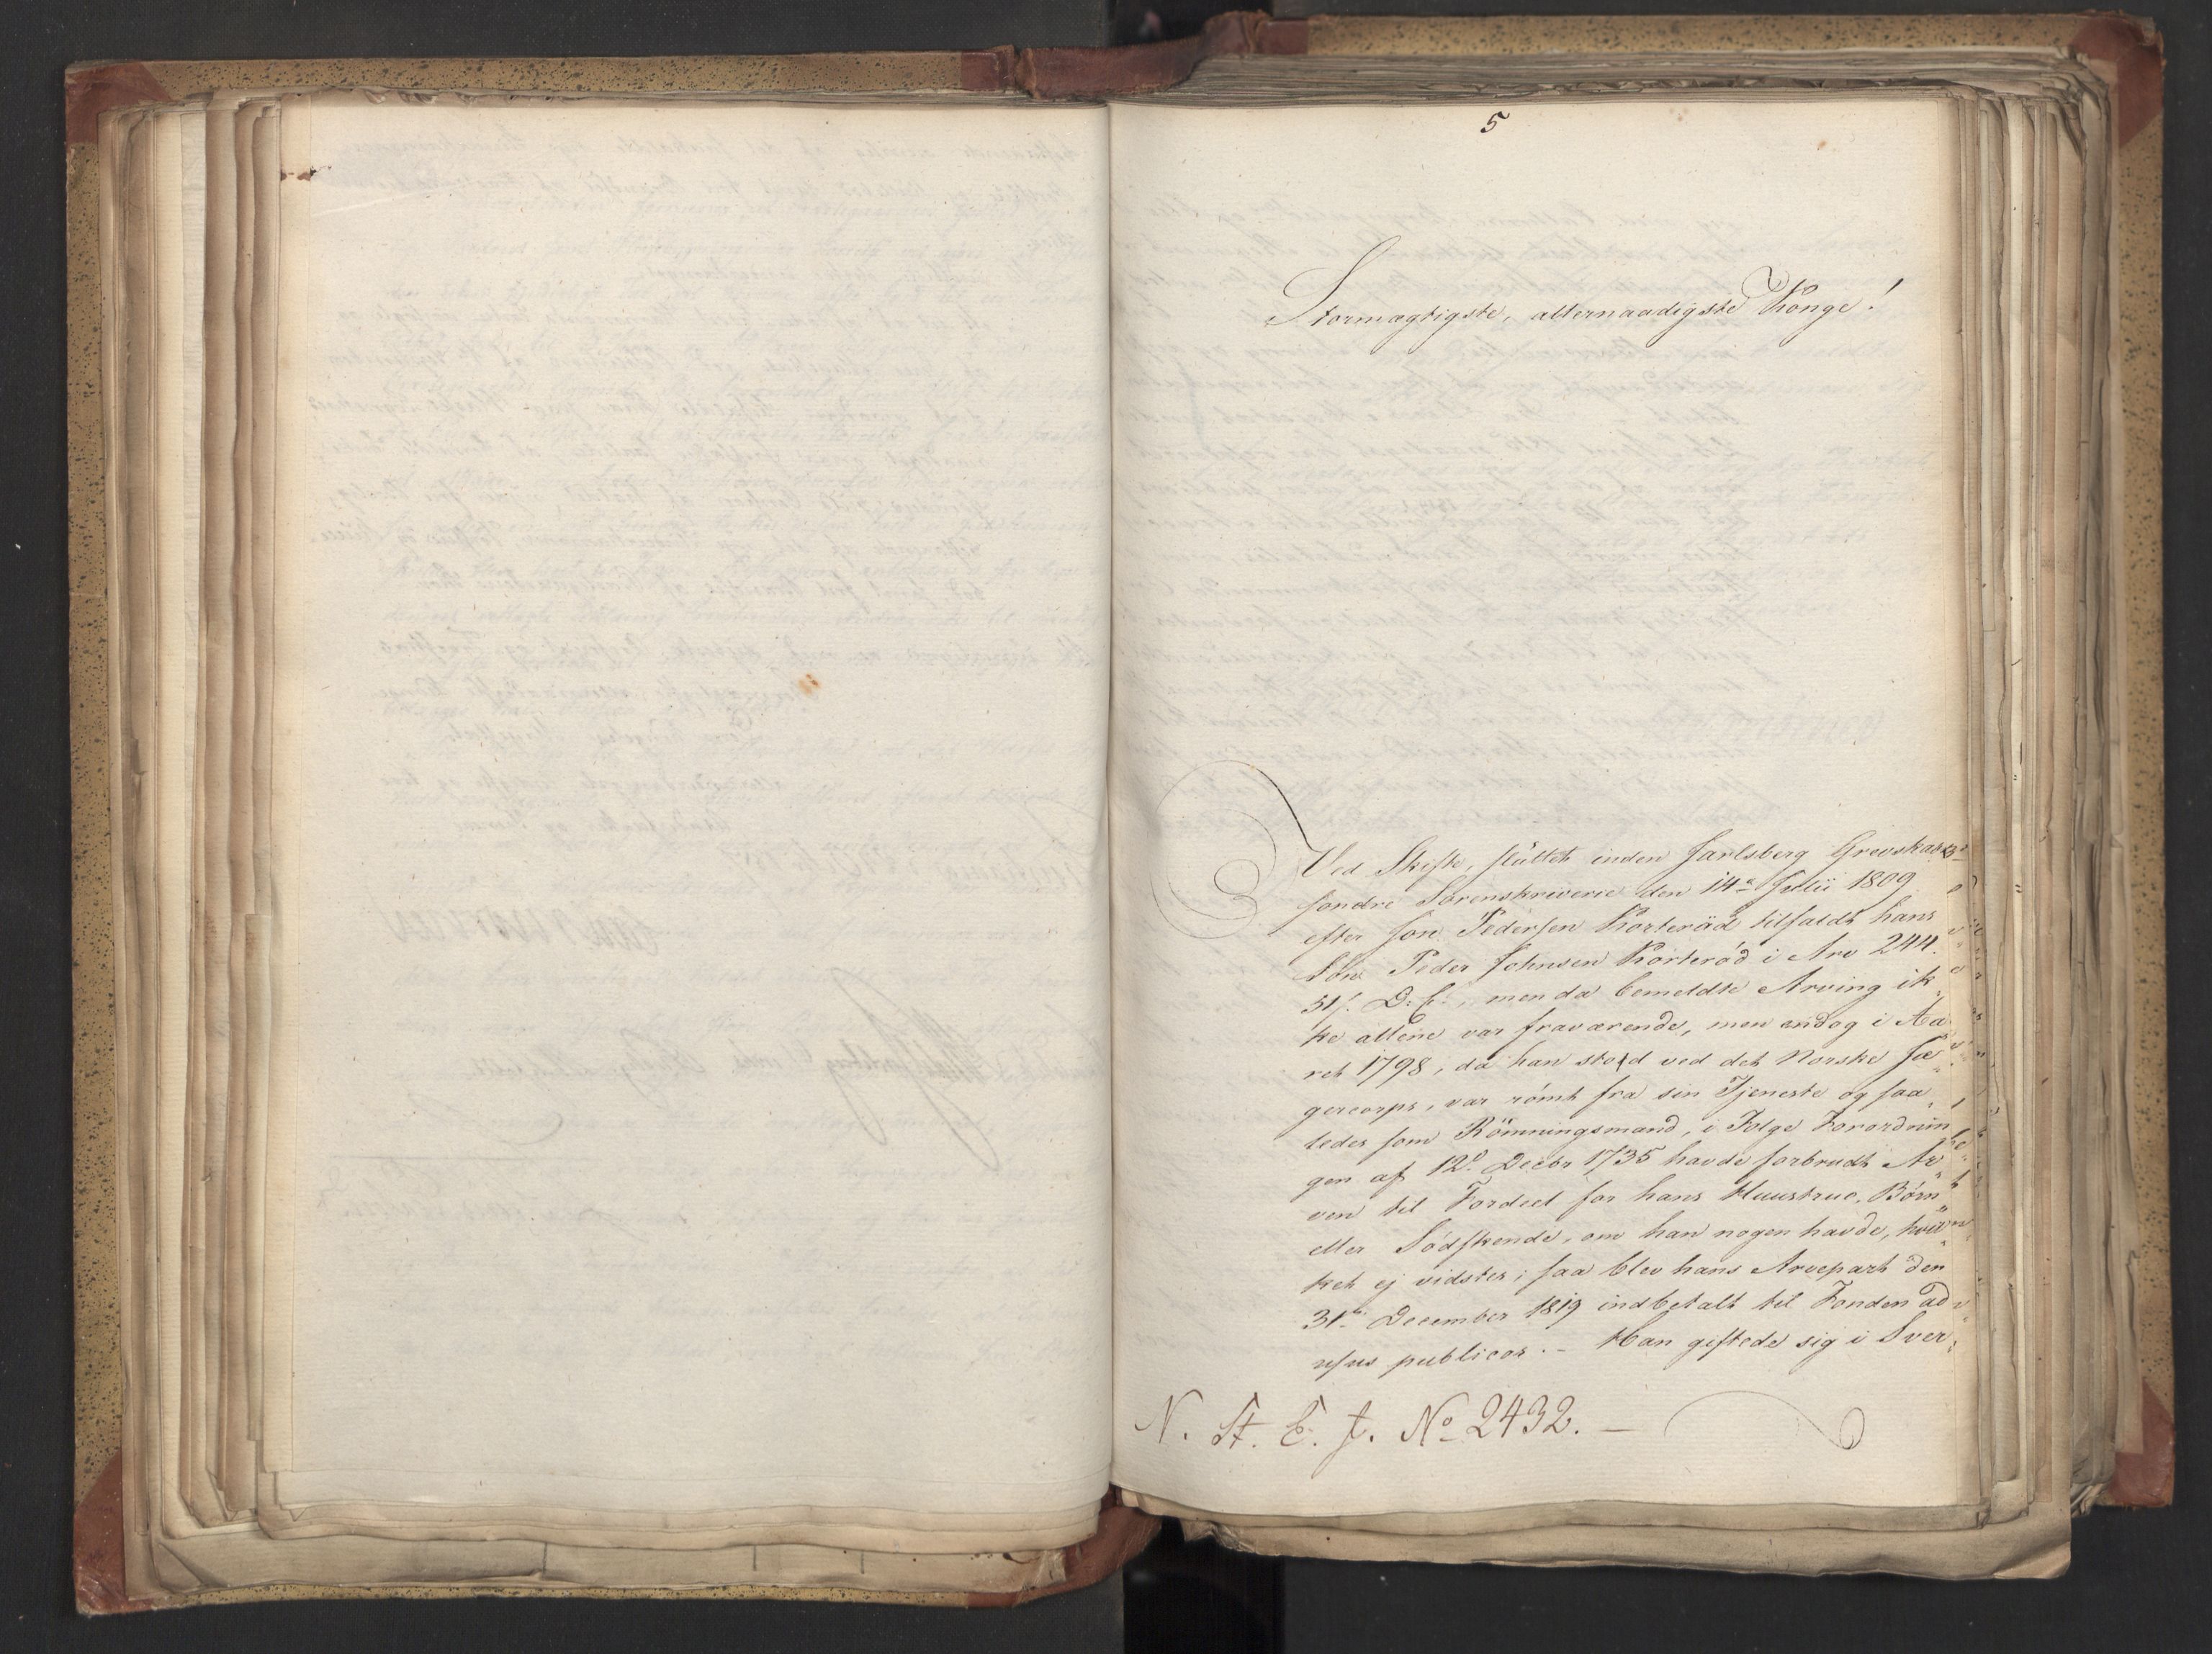 5
Stormægtigste, allernaadigste Konge!
Ved Skifte, slüttet inden Jarlsberg Grevskabs
søndre Sorenskriverie den 14de Julii 1809
efter Jon Pedersen Korteröd tilfaldt hans
Søn Peder Johnsen Korteröd i Arv 244.
51/. D: C:, men da bemeldte Arving ik„
ke allene var fraværende, men endog i Aa„
ret 1798, da han stod ved det Norske Jæ„
gercorps, var römt fra sin Tjeneste og saa„
ledes som Römningsmand, i Følge Forordnin„
gen af 12te Decbr 1735 havde forbrudt Ar„
ven til Fordeel for hans Huustrue, Börn
eller Södskende, om han nogen havde, hvil„
ket ej vidstes; saa blev hans Arvepart den
31te December 1819 indbetalt til Fonden ad
usus publicos. – Han giftede sig i Sver„
N. St. E. J. No 2432. –